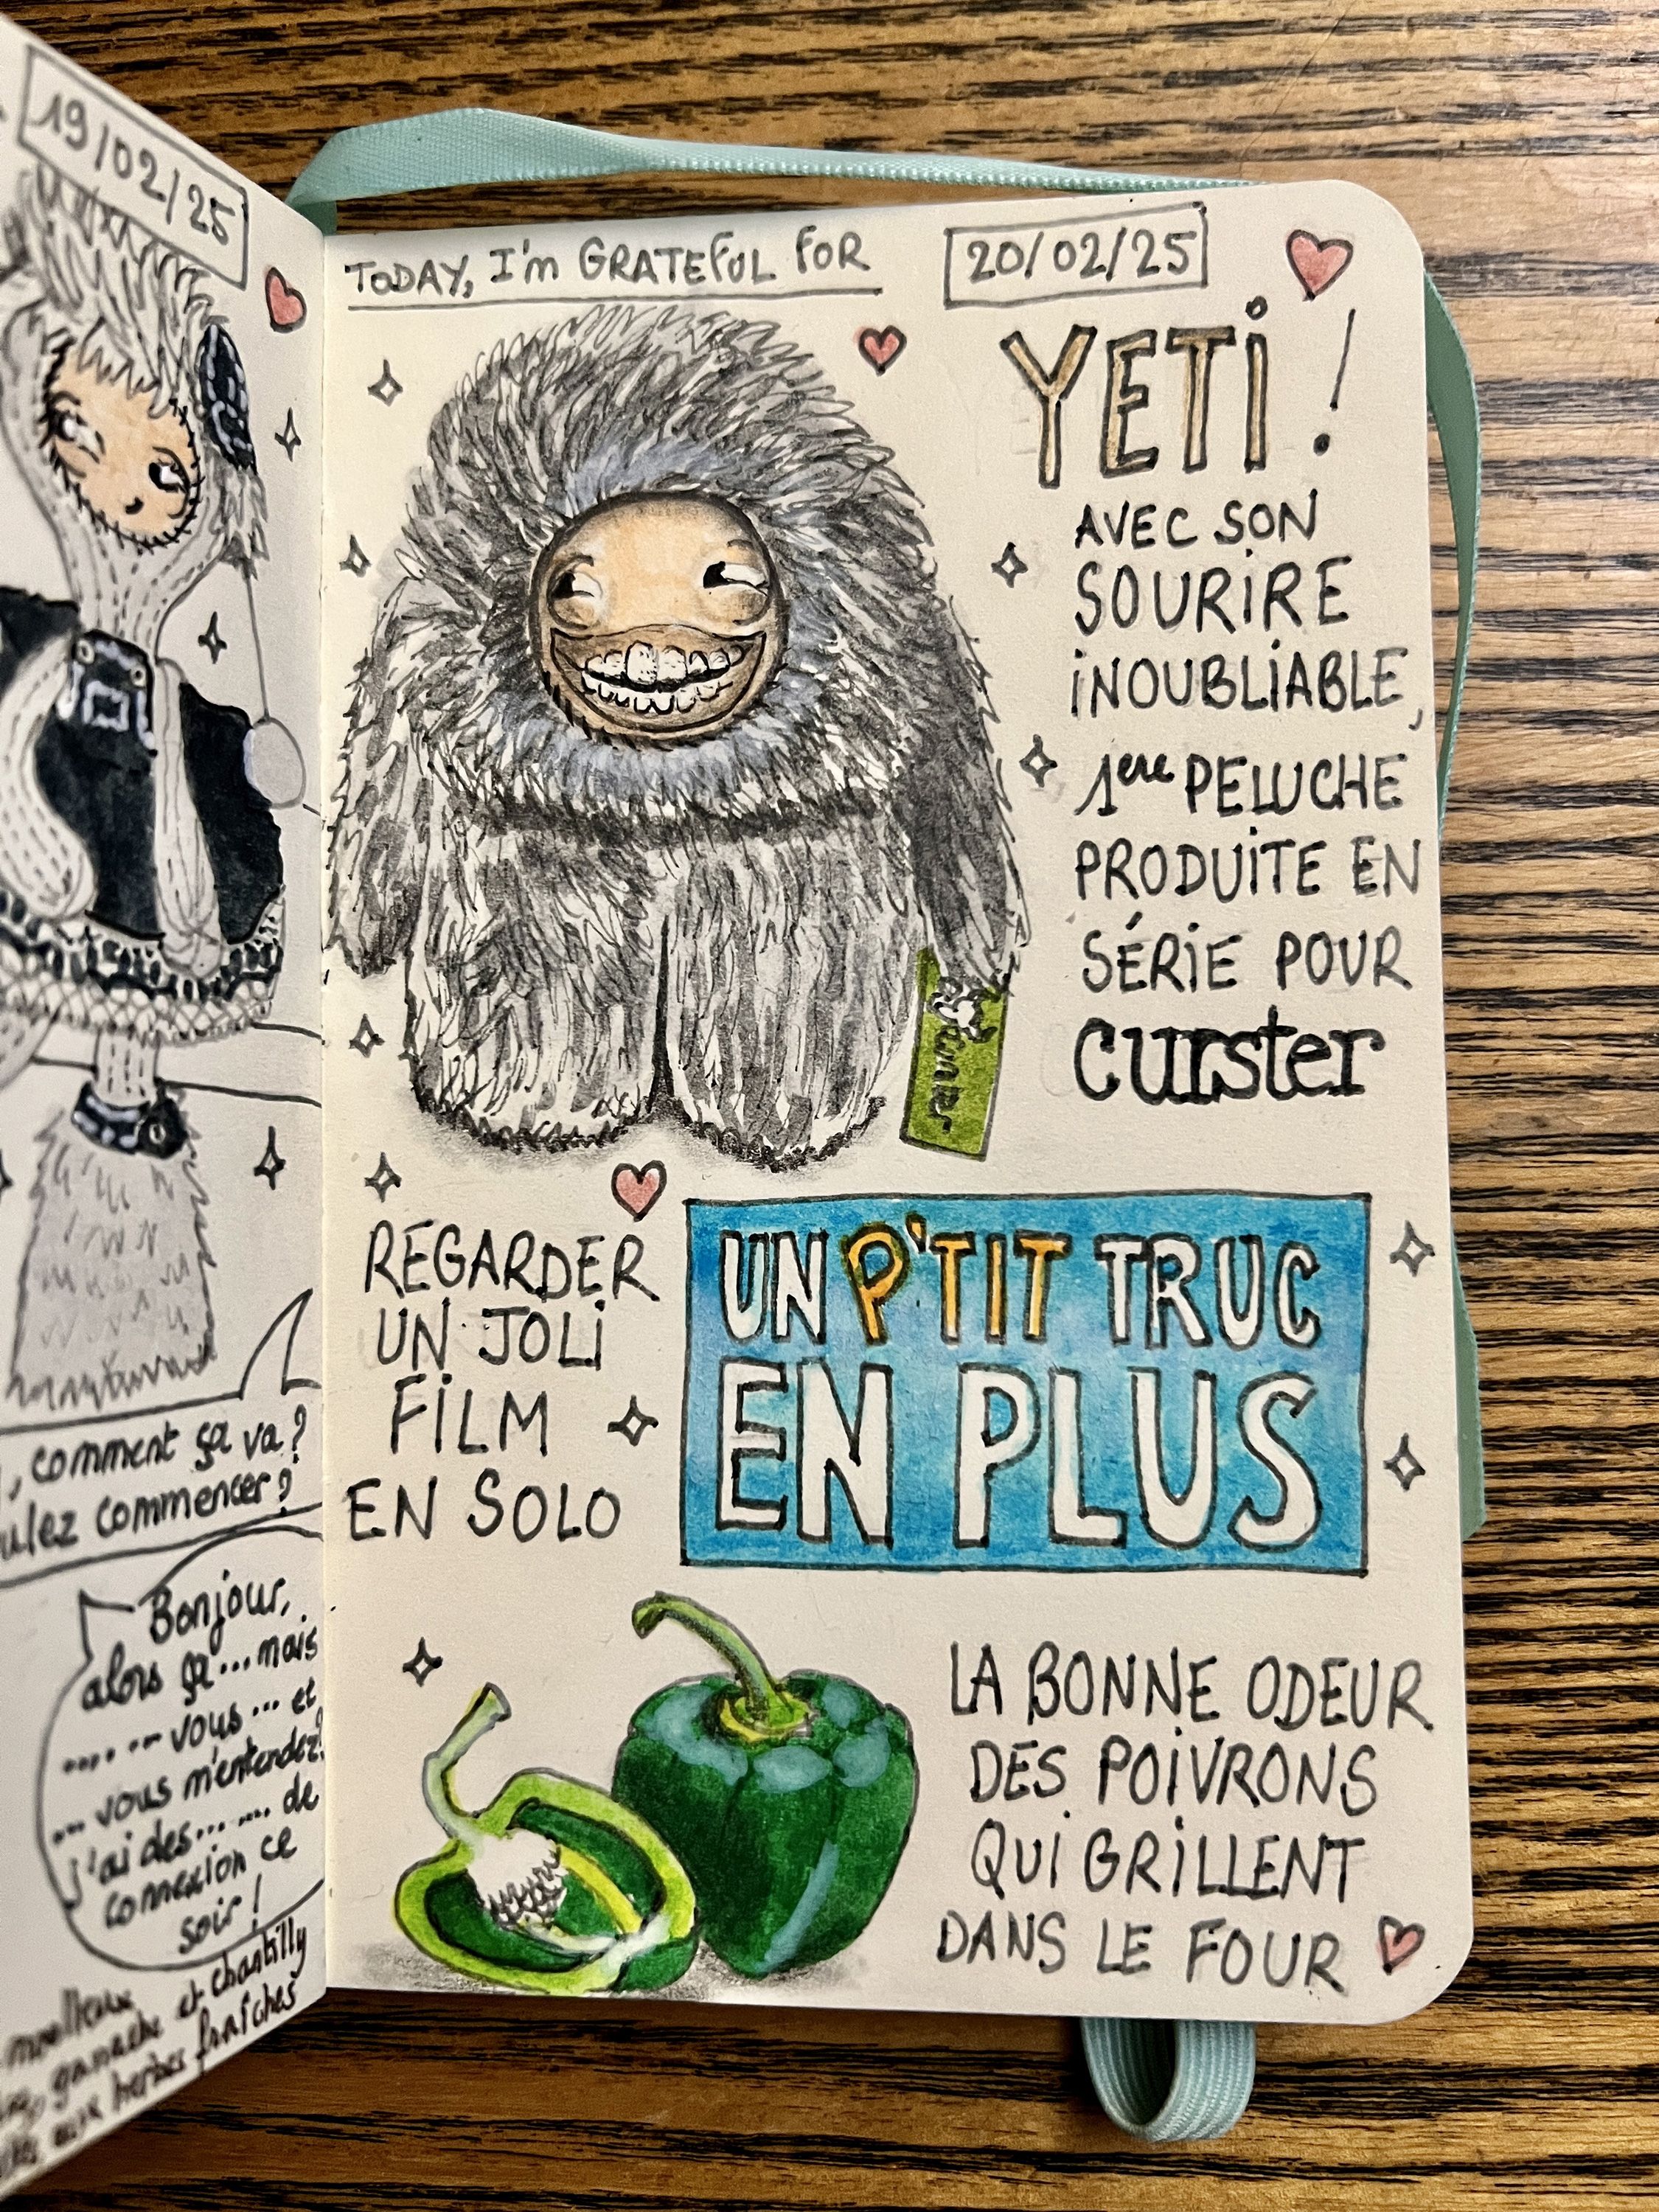 19/02/25
, comment ça va?
ulez commencer?
Bonjour,
alors ça... mais
.... -- vous ... et
... vous m'entendez?
j'ai des... .... de
connexion ce
soir!
moelleux
, ganache et chantilly
aux herbes fraîches
TODAY, I'm GRATEFUL FOR
20/02/25
YETI !
AVEC SON
SOURIRE
INOUBLIABLE,
1ere PELUCHE
PRODUITE EN
SÉRIE POUR
curster
REGARDER
UN JOLI
FILM
EN SOLO
UN P'TIT TRUC
EN PLUS
LA BONNE ODEUR
DES POIVRONS
QUI GRILLENT
DANS LE FOUR